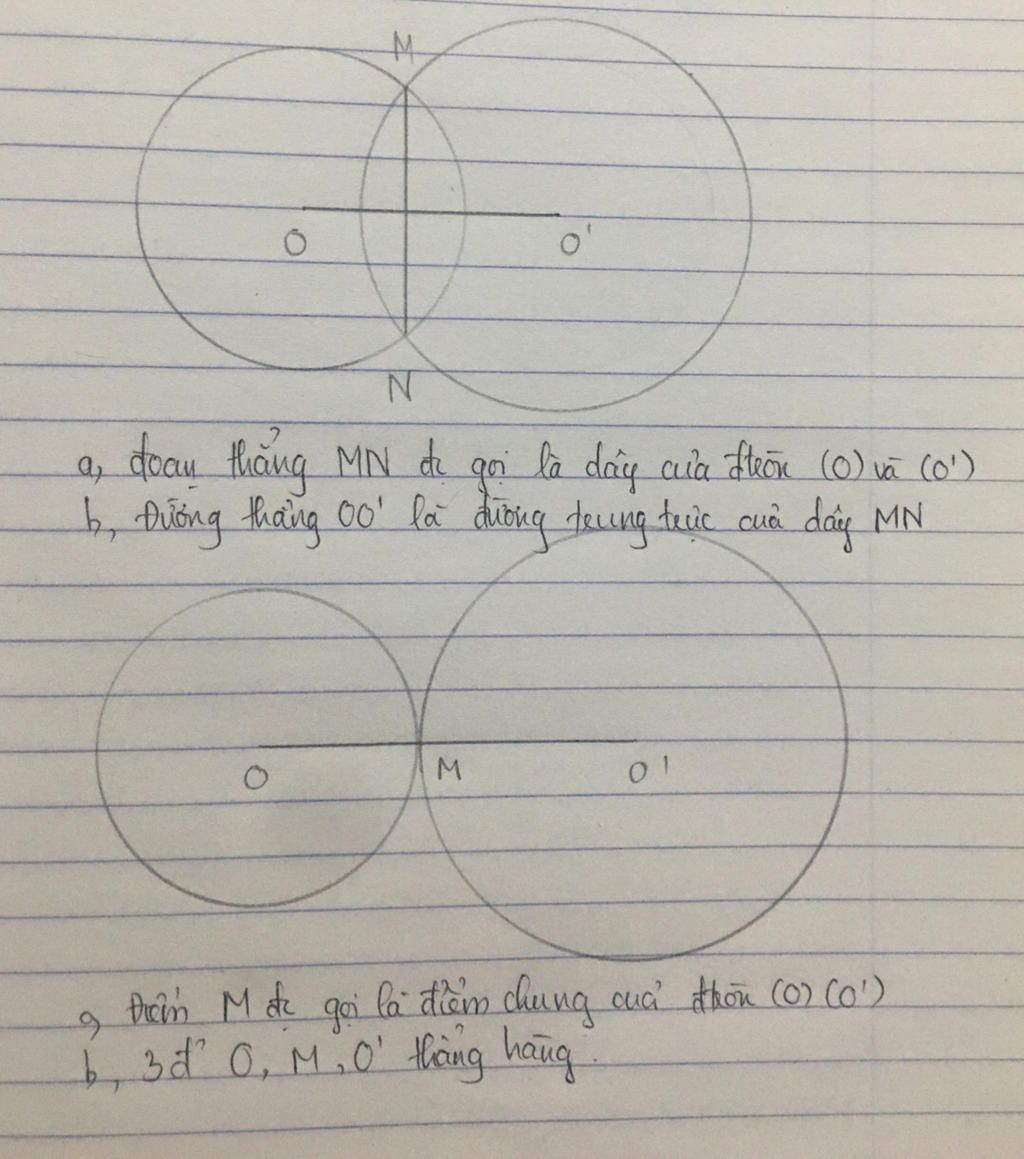 M
O
O'
N
a, đoạn thẳng MN đc gọi là dây của đtròn (O) và (O')
b, Đường thẳng OO' là đường trung trực của dây MN
O
M
O'
a, Điểm M đc gọi là điểm chung của đtròn (O) (O')
b, 3đ' O, M, O' thẳng hàng.